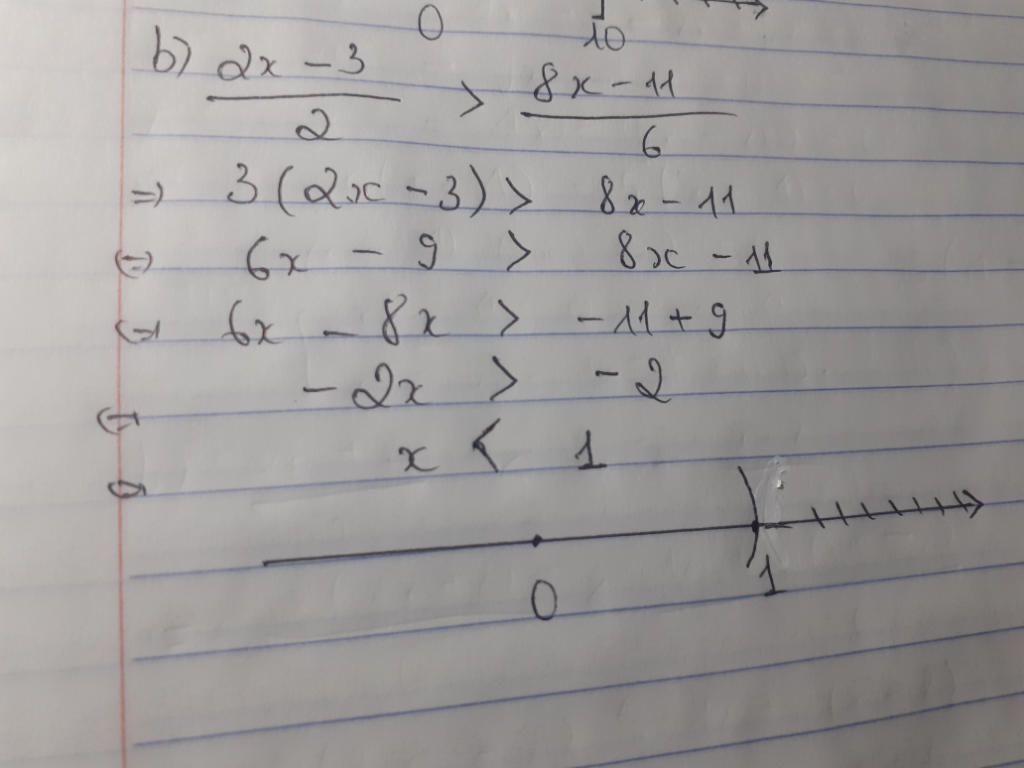 0 10
b) (2x - 3)/2 > (8x - 11)/6
=> 3(2x - 3) > 8x - 11
<=> 6x - 9 > 8x - 11
<=> 6x - 8x > -11 + 9
<=> -2x > -2
<=> x < 1
0 1